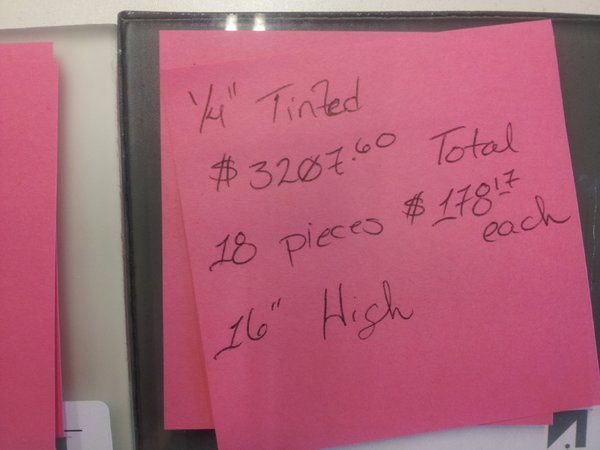 1/4" Tinted
$3207.60 Total
18 pieces $178.17 each
16" High